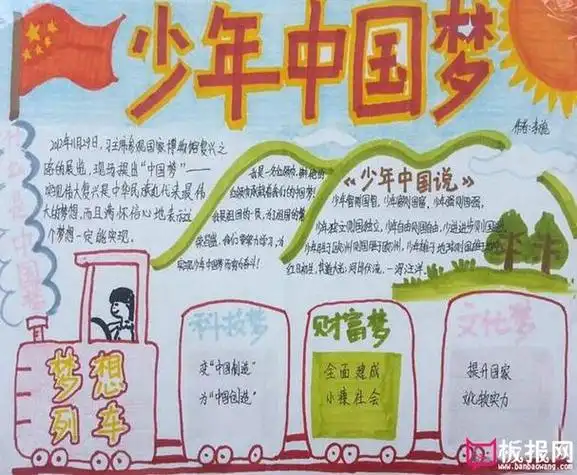 少年中国梦
2012年11月29日，习主席参观国家博物馆复兴之
路的展览，现场提出“中国梦”——
实现伟大复兴是中华民族近代来最伟
大的梦想，而且满怀信心地表示这个
梦想一定能实现。
《少年中国说》
少年智则国智，少年富则国富，少年强则国强，
少年独立则国独立，少年自由则国自由，少年进步则国进步，
少年胜于欧洲则国胜于欧洲，少年雄于地球则国雄于地球。
红日初升，其道大光；河出伏流，一泻汪洋。
梦想
列车
科技梦
变“中国制造”
为“中国创造”
财富梦
全面建成
小康社会
文化梦
提升国家
文化软实力
板报网
www.banbaowang.com